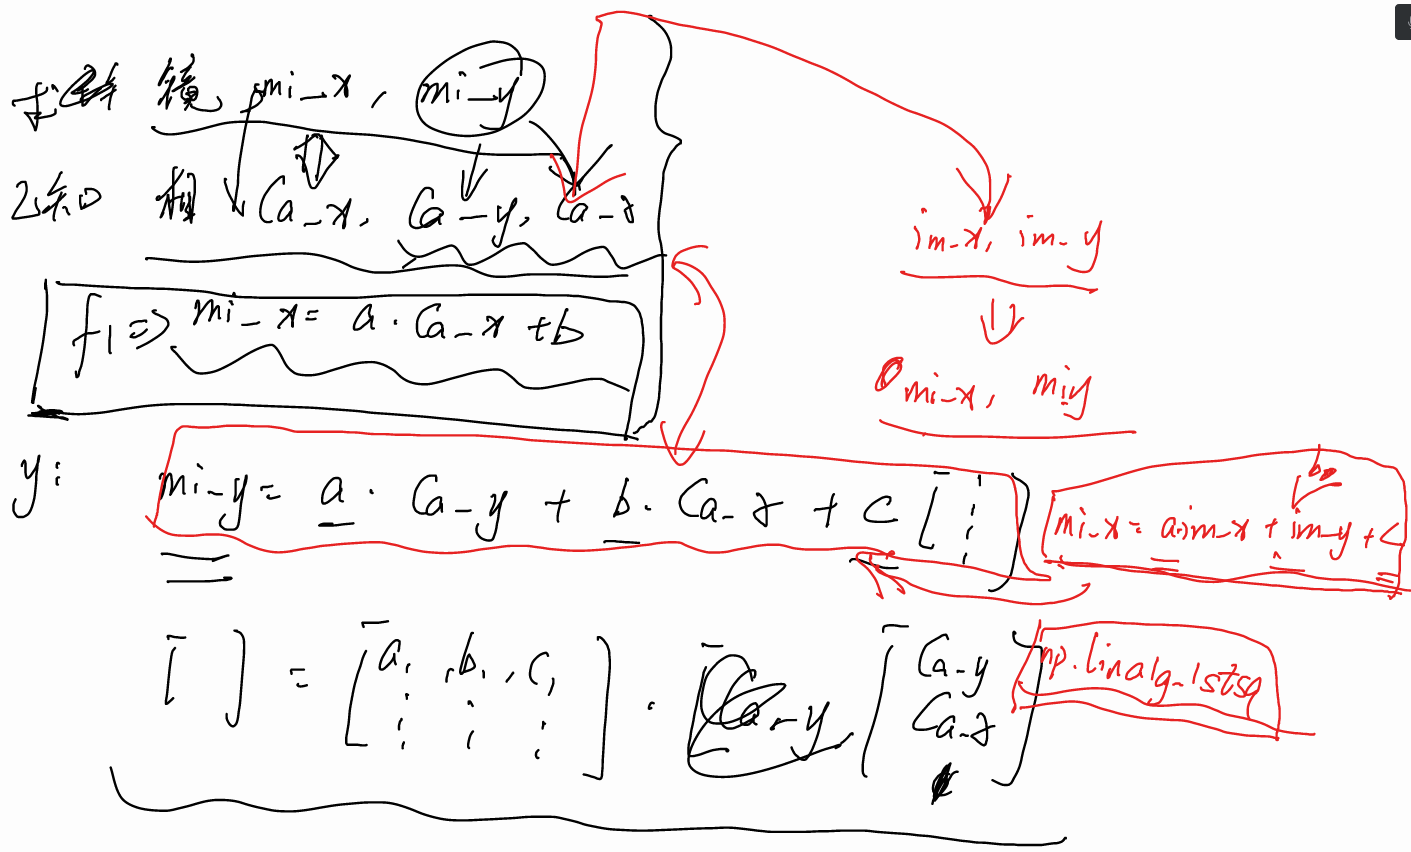 求 镜 mi_x, mi_y
已知 相 Ca_x, Ca_y, Ca_z
f1 => mi_x = a · Ca_x + b
y: mi_y = a · Ca_y + b · Ca_z + c
[ ] = [ a1, b1, c1 ] · Ca_y [ Ca_y
Ca_z ]
im_x, im_y
mi_x, miy
b
mi_x = a·im_x + im_y + c
np.linalg.lstsq